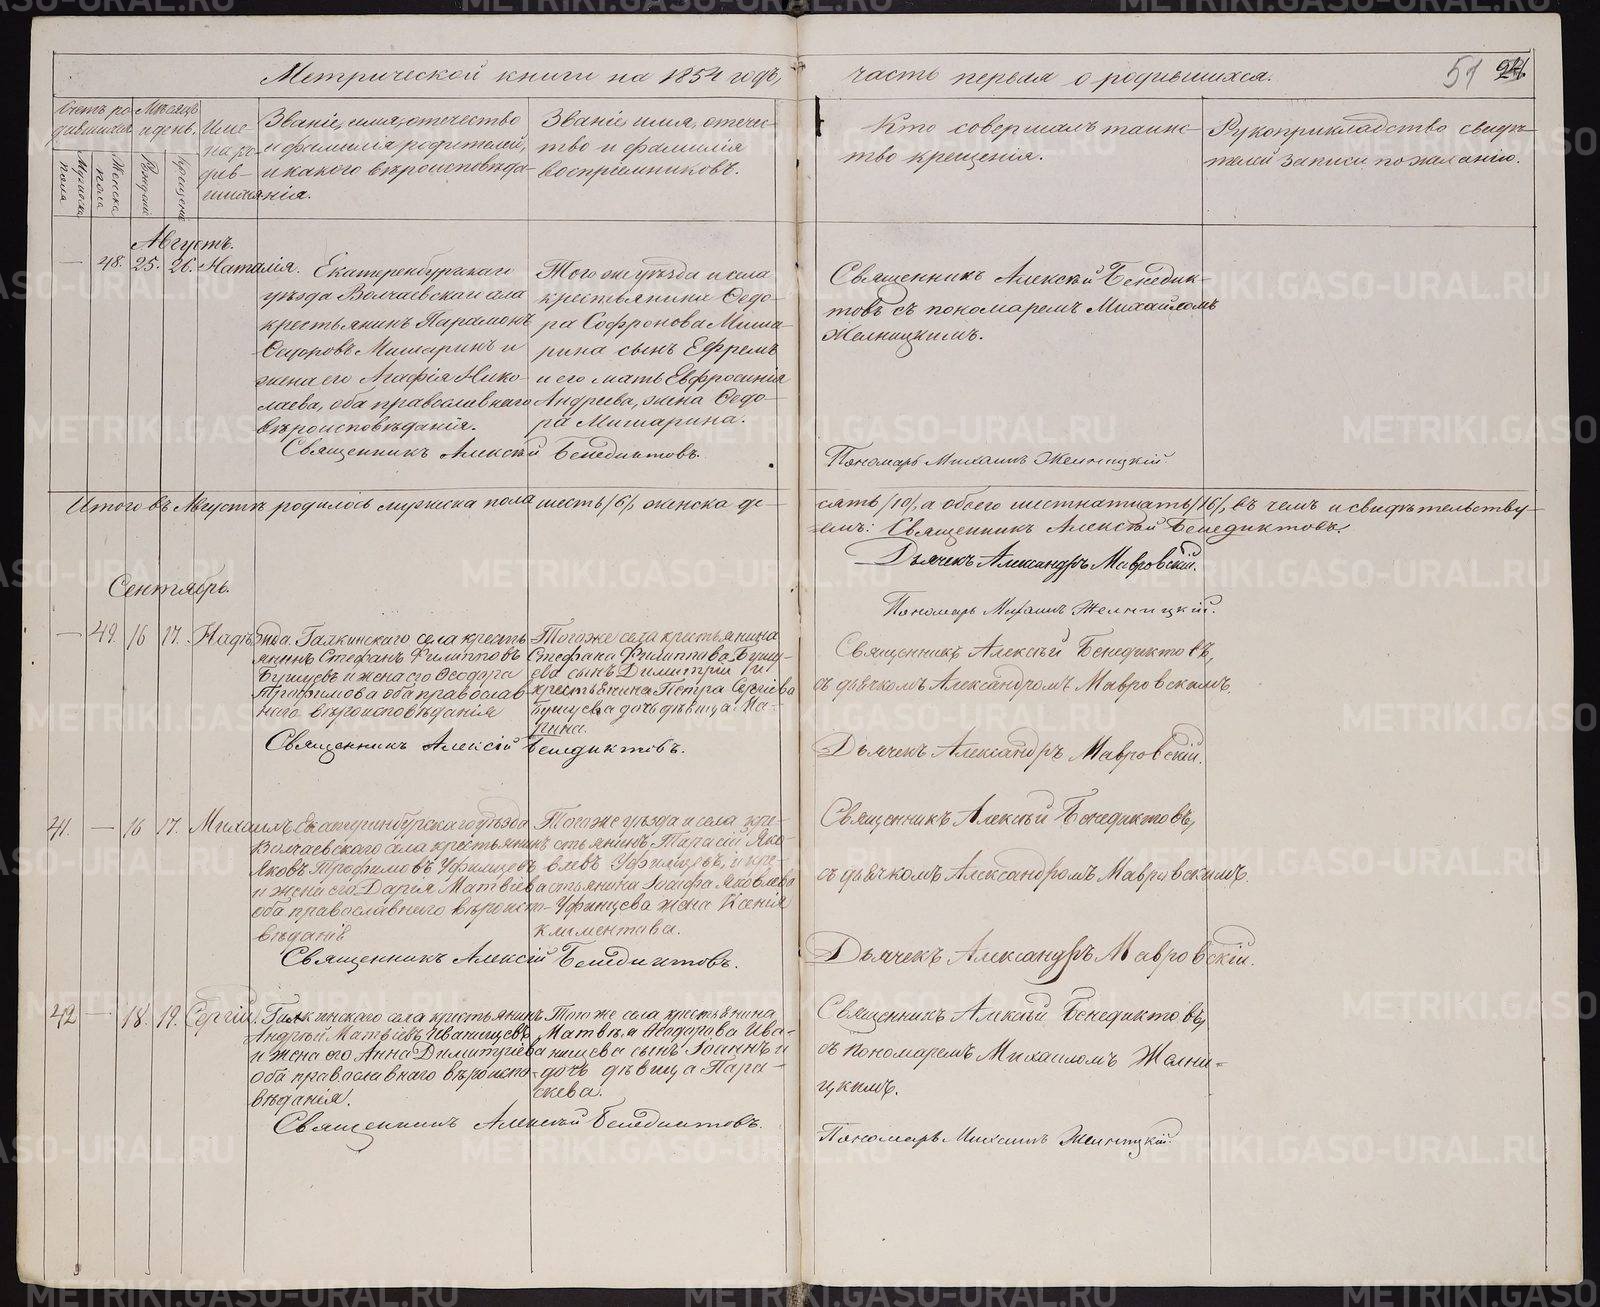 Метрической книги на 1854 годъ,
часть первая о родившихся.
51 24
Счетъ ро-
дившихся
Мужеска пола
Женска пола
Мѣсяцъ
и день.
Рожденія
Крещенія
Име-
на ро-
див-
шихся
Званіе, имя, отечество
и фамилія родителей,
и какого вѣроисповѣда-
нія.
Званіе, имя, отечес-
тво и фамилія
воспріемниковъ.
Кто совершалъ таинс-
тво крещенія.
Рукоприкладство свидѣ-
телей записи по желанію.
Августъ.
— 48. 25. 26. Наталія.
Екатеренбургскаго
уѣзда Волчаевскаго села
крестьянинъ Парамонъ
Мишаринъ и
жена его Агафія Нико-
лаева, оба православнаго
вѣроисповѣданія.
Священникъ Алексѣй Бенедиктовъ.
Того же уѣзда и села
крестьянина Ѳедо-
ра Софронова Миша-
рина сынъ Ефремъ
и его мать Евфросинія
Андреева, жена Ѳедо-
ра Мишарина.
Священникъ Алексѣй Бенедик-
товъ съ пономаремъ Михаиломъ
Желницкимъ.
Пономарь Михаилъ Желницкій.
Итого въ Августѣ родилось мужеска пола шесть /6/, женска де-
сять /10/, а обоего шестнатцать /16/, въ чемъ и свидѣтельству-
емъ: Священникъ Алексѣй Бенедиктовъ.
Дьячекъ Александръ Мавровскій.
Пономарь Михаилъ Желницкій.
Сентябрь.
— 49. 16 17. Надѣжда.
Галкинскаго села кресть
янинъ Стефанъ Филипповъ
Бушуевъ и жена его Ѳеодора
Трофимова оба православ-
наго вѣроисповѣданія
Священникъ Алексій Бенедиктовъ.
Того же села крестьянина
Стефана Филиппова Бушу-
ева сынъ Димитрій и
крестьянина Петра Сергіева
Бушуева дочь дѣвица Ма-
рина.
Священникъ Алексѣй Бенедиктовъ,
съ дьячкомъ Александромъ Мавровскимъ.
Дьячекъ Александръ Мавровскій.
41. — 16 17. Михаилъ
Екатеринбургскаго уѣзда
Волчаевскаго села крестьянинъ
Яковъ Трофимовъ Уфинцевъ
и жена его Дарія Матвѣева
оба православнаго вѣроиспо-
вѣданія
Священникъ Алексій Бенедиктовъ.
Того же уѣзда и села кре-
стьянинъ Тарасій Яко-
влевъ Уфинцевъ, и кре-
стьянина Іосифа Яковлева
Уфинцева жена Ксенія
Климентова.
Священникъ Алексѣй Бенедиктовъ,
съ дьячкомъ Александромъ Мавровскимъ.
Дьячекъ Александръ Мавровскій.
42 — 18. 19. Сергій.
Галкинскаго села крестьянинъ
Андрей Матвѣевъ Иванищевъ
и жена его Анна Димитріева
оба православнаго вѣроиспо-
вѣданія.
Священникъ Алексѣй Бенедиктовъ.
Того же села крестьянина
Матвѣя Ѳеодорова Ива-
нищева сынъ Іоаннъ и
дочь дѣвица Пара-
скева.
Священникъ Алексѣй Бенедиктовъ,
съ пономаремъ Михаиломъ Желни-
цкимъ.
Пономарь Михаилъ Желницкій.
METRIKI.GASO-URAL.RU